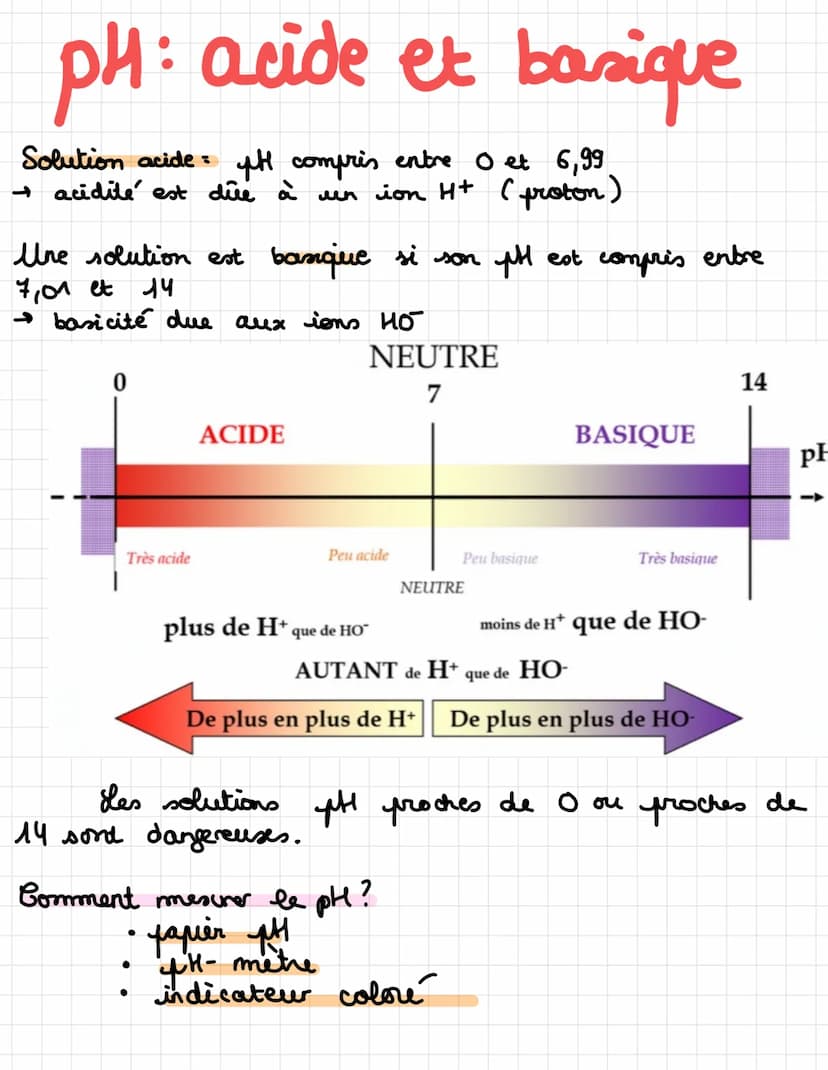 pH: acide et basique
Solution acide: pH compris entre 0 et 6,99
→ acidité est dûe à un ion H+ (proton)
Une solution est basique si son pH est compris entre
7,01 et 14
→ basicité due aux ions HO⁻
NEUTRE
0 7 14
ACIDE BASIQUE
pH
Très acide Peu acide Peu basique Très basique
NEUTRE
plus de H⁺ que de HO⁻ moins de H⁺ que de HO⁻
AUTANT de H⁺ que de HO⁻
De plus en plus de H⁺ De plus en plus de HO⁻
Les solutions pH proches de 0 ou proches de
14 sont dangereuses.
Comment mesurer le pH?
• papier pH
• pH-mètre
• indicateur coloré